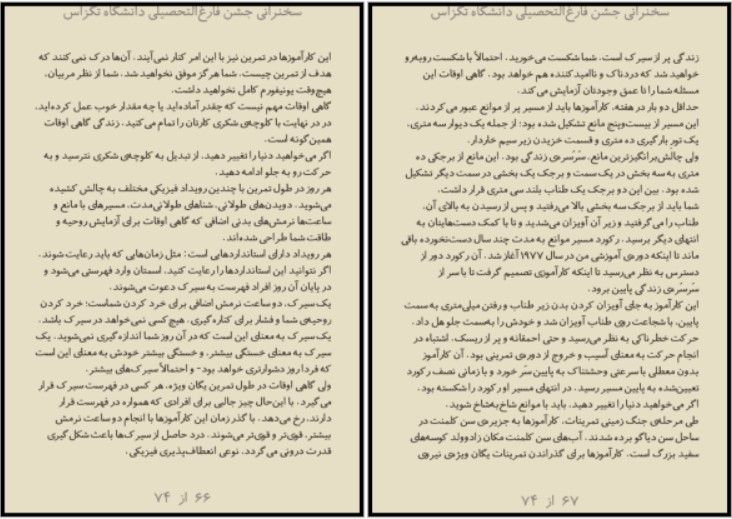 سخنرانی جشن فارغ‌التحصیلی دانشگاه تگزاس
این کارآموزها در تمرین نیز با این امر کنار نمی‌آیند. آن‌ها درک نمی کنند که
هدف از تمرین چیست. شما هرگز موفق نخواهید شد. شما از نظر مربیان،
هیچ‌وقت یونیفورم کامل نخواهید داشت.
گاهی اوقات مهم نیست که چقدر آماده‌اید یا چه مقدار خوب عمل کرده‌اید،
در در نهایت با کلوچه‌ی شکری کارتان را تمام می کنید. زندگی گاهی اوقات
همین‌گونه است.
اگر می‌خواهید دنیا را تغییر دهید، از تبدیل به کلوچه‌ی شکری نترسید و به
حرکت رو به جلو ادامه دهید.
هر روز در طول تمرین با چندین رویداد فیزیکی مختلف به چالش کشیده
می‌شوید. دویدن‌های طولانی، شناهای طولانی‌مدت، مسیرهای با مانع و
ساعت‌ها نرمش‌های بدنی اضافی که گاهی اوقات برای آزمایش روحیه و
طاقت شما طراحی شده‌اند.
هر رویداد دارای استانداردهایی است؛ مثل زمان‌هایی که باید رعایت شوند.
اگر نتوانید این استانداردها را رعایت کنید، اسمتان وارد فهرستی می‌شود و
در پایان آن روز افراد فهرست به سیرک دعوت می‌شوند.
یک سیرک، دو ساعت نرمش اضافی برای خرد کردن شماست؛ خرد کردن
روحیه‌ی شما و فشار برای کناره‌گیری. هیچ‌کسی نمی‌خواهد در سیرک باشد.
یک سیرک به معنای این است که در آن روز شما اندازه‌گیری نمی‌شوید. یک
سیرک به معنای خستگی بیشتر، و خستگی بیشتر خودش به معنای این است
که فردا روز دشوارتری خواهد بود- و احتمالاً سیرک‌های بیشتر.
ولی گاهی اوقات در طول تمرین یگان ویژه، هر کسی در فهرست سیرک قرار
می گیرد. با این‌حال چیز جالبی برای افرادی که همواره در فهرست قرار
دارند، رخ می‌دهد. با گذر زمان این کارآموزها با انجام دو ساعت نرمش
بیشتر، قوی‌تر و قوی‌تر می‌شوند. درد حاصل از سیرک‌ها باعث شکل گیری
قدرت درونی می گردد، نوعی انعطاف‌پذیری فیزیکی.
۶۶ از ۷۴
سخنرانی جشن فارغ‌التحصیلی دانشگاه تگزاس
زندگی پر از سیرک است. شما شکست می‌خورید. احتمالاً با شکست روبه‌رو
خواهید شد که دردناک و ناامیدکننده هم خواهد بود. گاهی اوقات این
مسئله شما را تا عمق وجودتان آزمایش می کند.
حداقل دو بار در هفته، کارآموزها باید از مسیر پر از موانع عبور می کردند.
این مسیر از بیست‌وپنج مانع تشکیل شده بود؛ از جمله یک دیوار سه متری،
یک تور بارگیری ده متری و قسمت خزیدن زیر سیم خاردار.
ولی چالش‌برانگیزترین مانع، سُرسُره‌ی زندگی بود. این مانع از برجکی ده
متری به سه بخش در یک سمت و برجک یک بخشی در سمت دیگر تشکیل
شده بود. بین این دو برجک یک طناب بلند سی متری قرار داشت.
شما باید از برجک سه بخشی بالا می‌رفتید و پس از رسیدن به بالای آن،
طناب را می گرفتید و زیر آن آویزان می‌شدید و تا با کمک دست‌هایتان به
انتهای دیگر برسید. رکورد مسیر موانع به مدت چند سال دست‌نخورده باقی
ماند تا اینکه دوره‌ی آموزشی من در سال ۱۹۷۷ آغاز شد. آن رکورد دور از
دسترس به نظر می‌رسید تا اینکه کارآموزی تصمیم گرفت تا با سر از
سُرسُره‌ی زندگی پایین برود.
این کارآموز به جای آویزان کردن بدن زیر طناب و رفتن میلی‌متری به سمت
پایین، با شجاعت روی طناب آویزان شد و خودش را به‌سمت جلو هل داد.
حرکت خطرناکی به نظر می‌رسید و حتی احمقانه و پر از ریسک. اشتباه در
انجام حرکت به معنای آسیب و خروج از دوره‌ی تمرینی بود. آن کارآموز
بدون معطلی با سرعتی وحشتناک به پایین سُر خورد و با زمانی نصف رکورد
تعیین‌شده به پایین مسیر رسید. در انتهای مسیر او رکورد را شکسته بود.
اگر می‌خواهید دنیا را تغییر دهید، باید با موانع شاخ‌به‌شاخ شوید.
طی مرحله‌ی جنگ زمینی تمرینات، کارآموزها به جزیره‌ی سن کلمنت در
ساحل سن دیاگو برده شدند. آب‌های سن کلمنت مکان زادوولد کوسه‌های
سفید بزرگ است. کارآموزها برای گذراندن تمرینات یگان ویژه‌ی نیروی
۶۷ از ۷۴